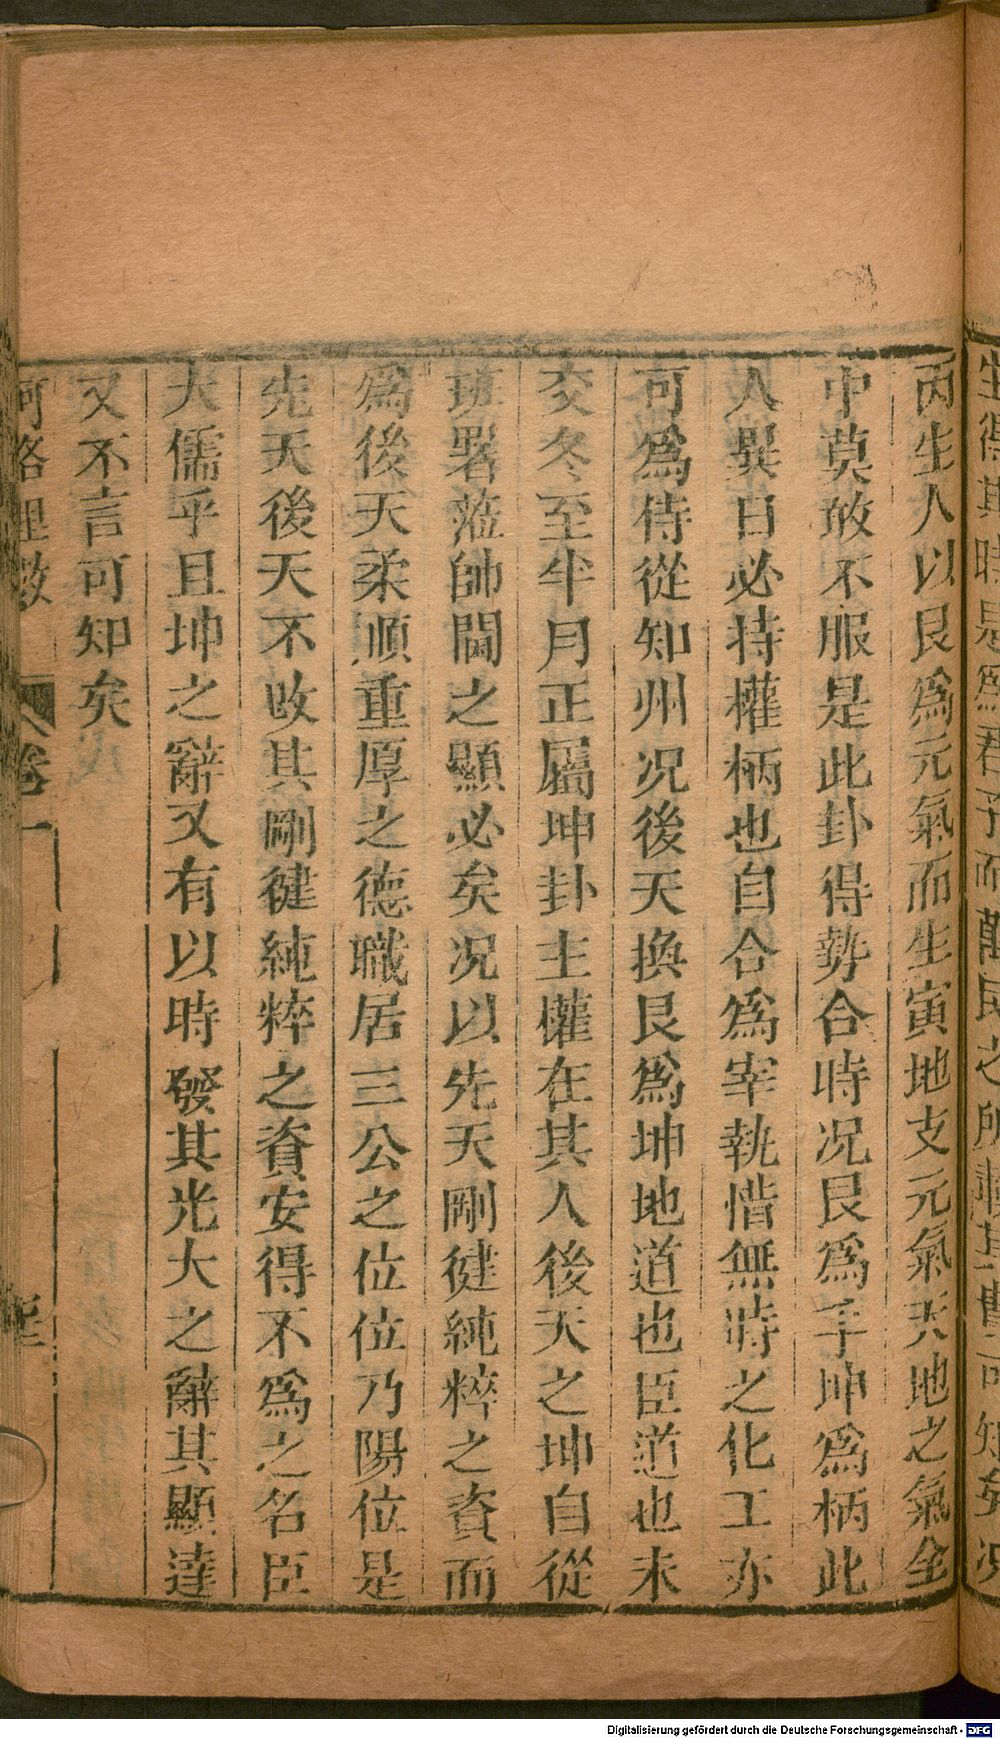 生得其時是為君子而萬民之所載其豊可知矣况
丙生人以艮為元氣而生寅地支元氣天地之氣全
中莫敢不服是此卦得勢合時况艮為手坤為柄此
人異日必持權柄也自合為宰執惜無時之化工亦
可為侍從知州况後天換艮為坤地道也臣道也未
交冬至半月正屬坤卦主權在其人後天之坤自從
班署蒞帥閫之顯必矣况以先天剛健純粹之資而
為後天柔順重厚之德職居三公之位位乃陽位是
先天後天不改其剛健純粹之資安得不為之名臣
大儒乎且坤之辭又有以時發其光大之辭其顯達
又不言可知矣
河洛理數 卷一
Digitalisierung gefördert durch die Deutsche Forschungsgemeinschaft - DFG